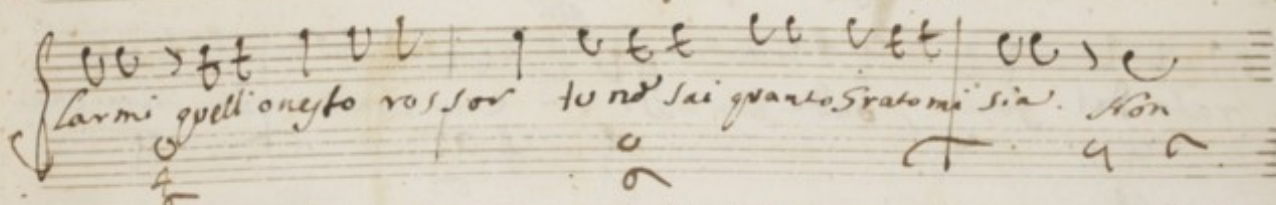 larmi quell'onesto rossor tu nõ sai quanto Grato mi sia. Non